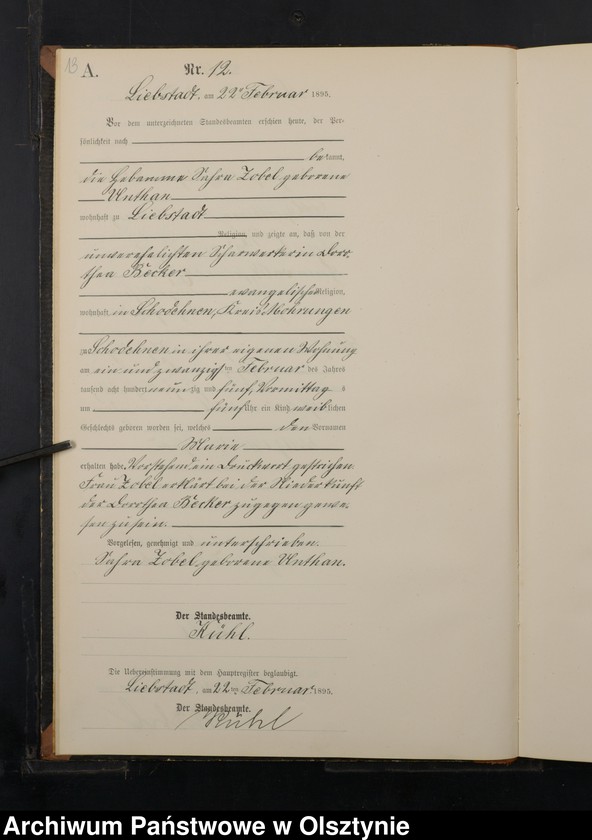 13
A.
Nr. 12.
Liebstadt, am 22ten Februar 1895.
Vor dem unterzeichneten Standesbeamten erschien heute, der Per-
sönlichkeit nach
bekannt,
die Hebamme Zobel geborene
Unthan
wohnhaft zu Liebstadt
Religion, und zeigte an, daß von der
unverehelichten Scharwerkerin Doro-
thea Becker
evangelischer Religion,
wohnhaft in Schodehnen, Kreis Mohrungen
zu Schodehnen in ihrer eigenen Wohnung
am ein und zwanzigsten Februar des Jahres
tausend acht hundert neunzig und fünf, Vormittags
um fünf Uhr ein Kind weiblichen
Geschlechts geboren worden sei, welches den Vornamen
Marie
erhalten habe. Vorstehend ein Druckwort gestrichen.
Frau Zobel erklärt bei der Niederkunft
der Dorothea Becker zugegen gewe-
sen zu sein.
Vorgelesen, genehmigt und unterschrieben.
Zobel, geborene Unthan.
Der Standesbeamte.
Kühl.
Die Uebereinstimmung mit dem Hauptregister beglaubigt.
Liebstadt, am 22ten Februar 1895.
Der Standesbeamte.
Kühl
Archiwum Państwowe w Olsztynie